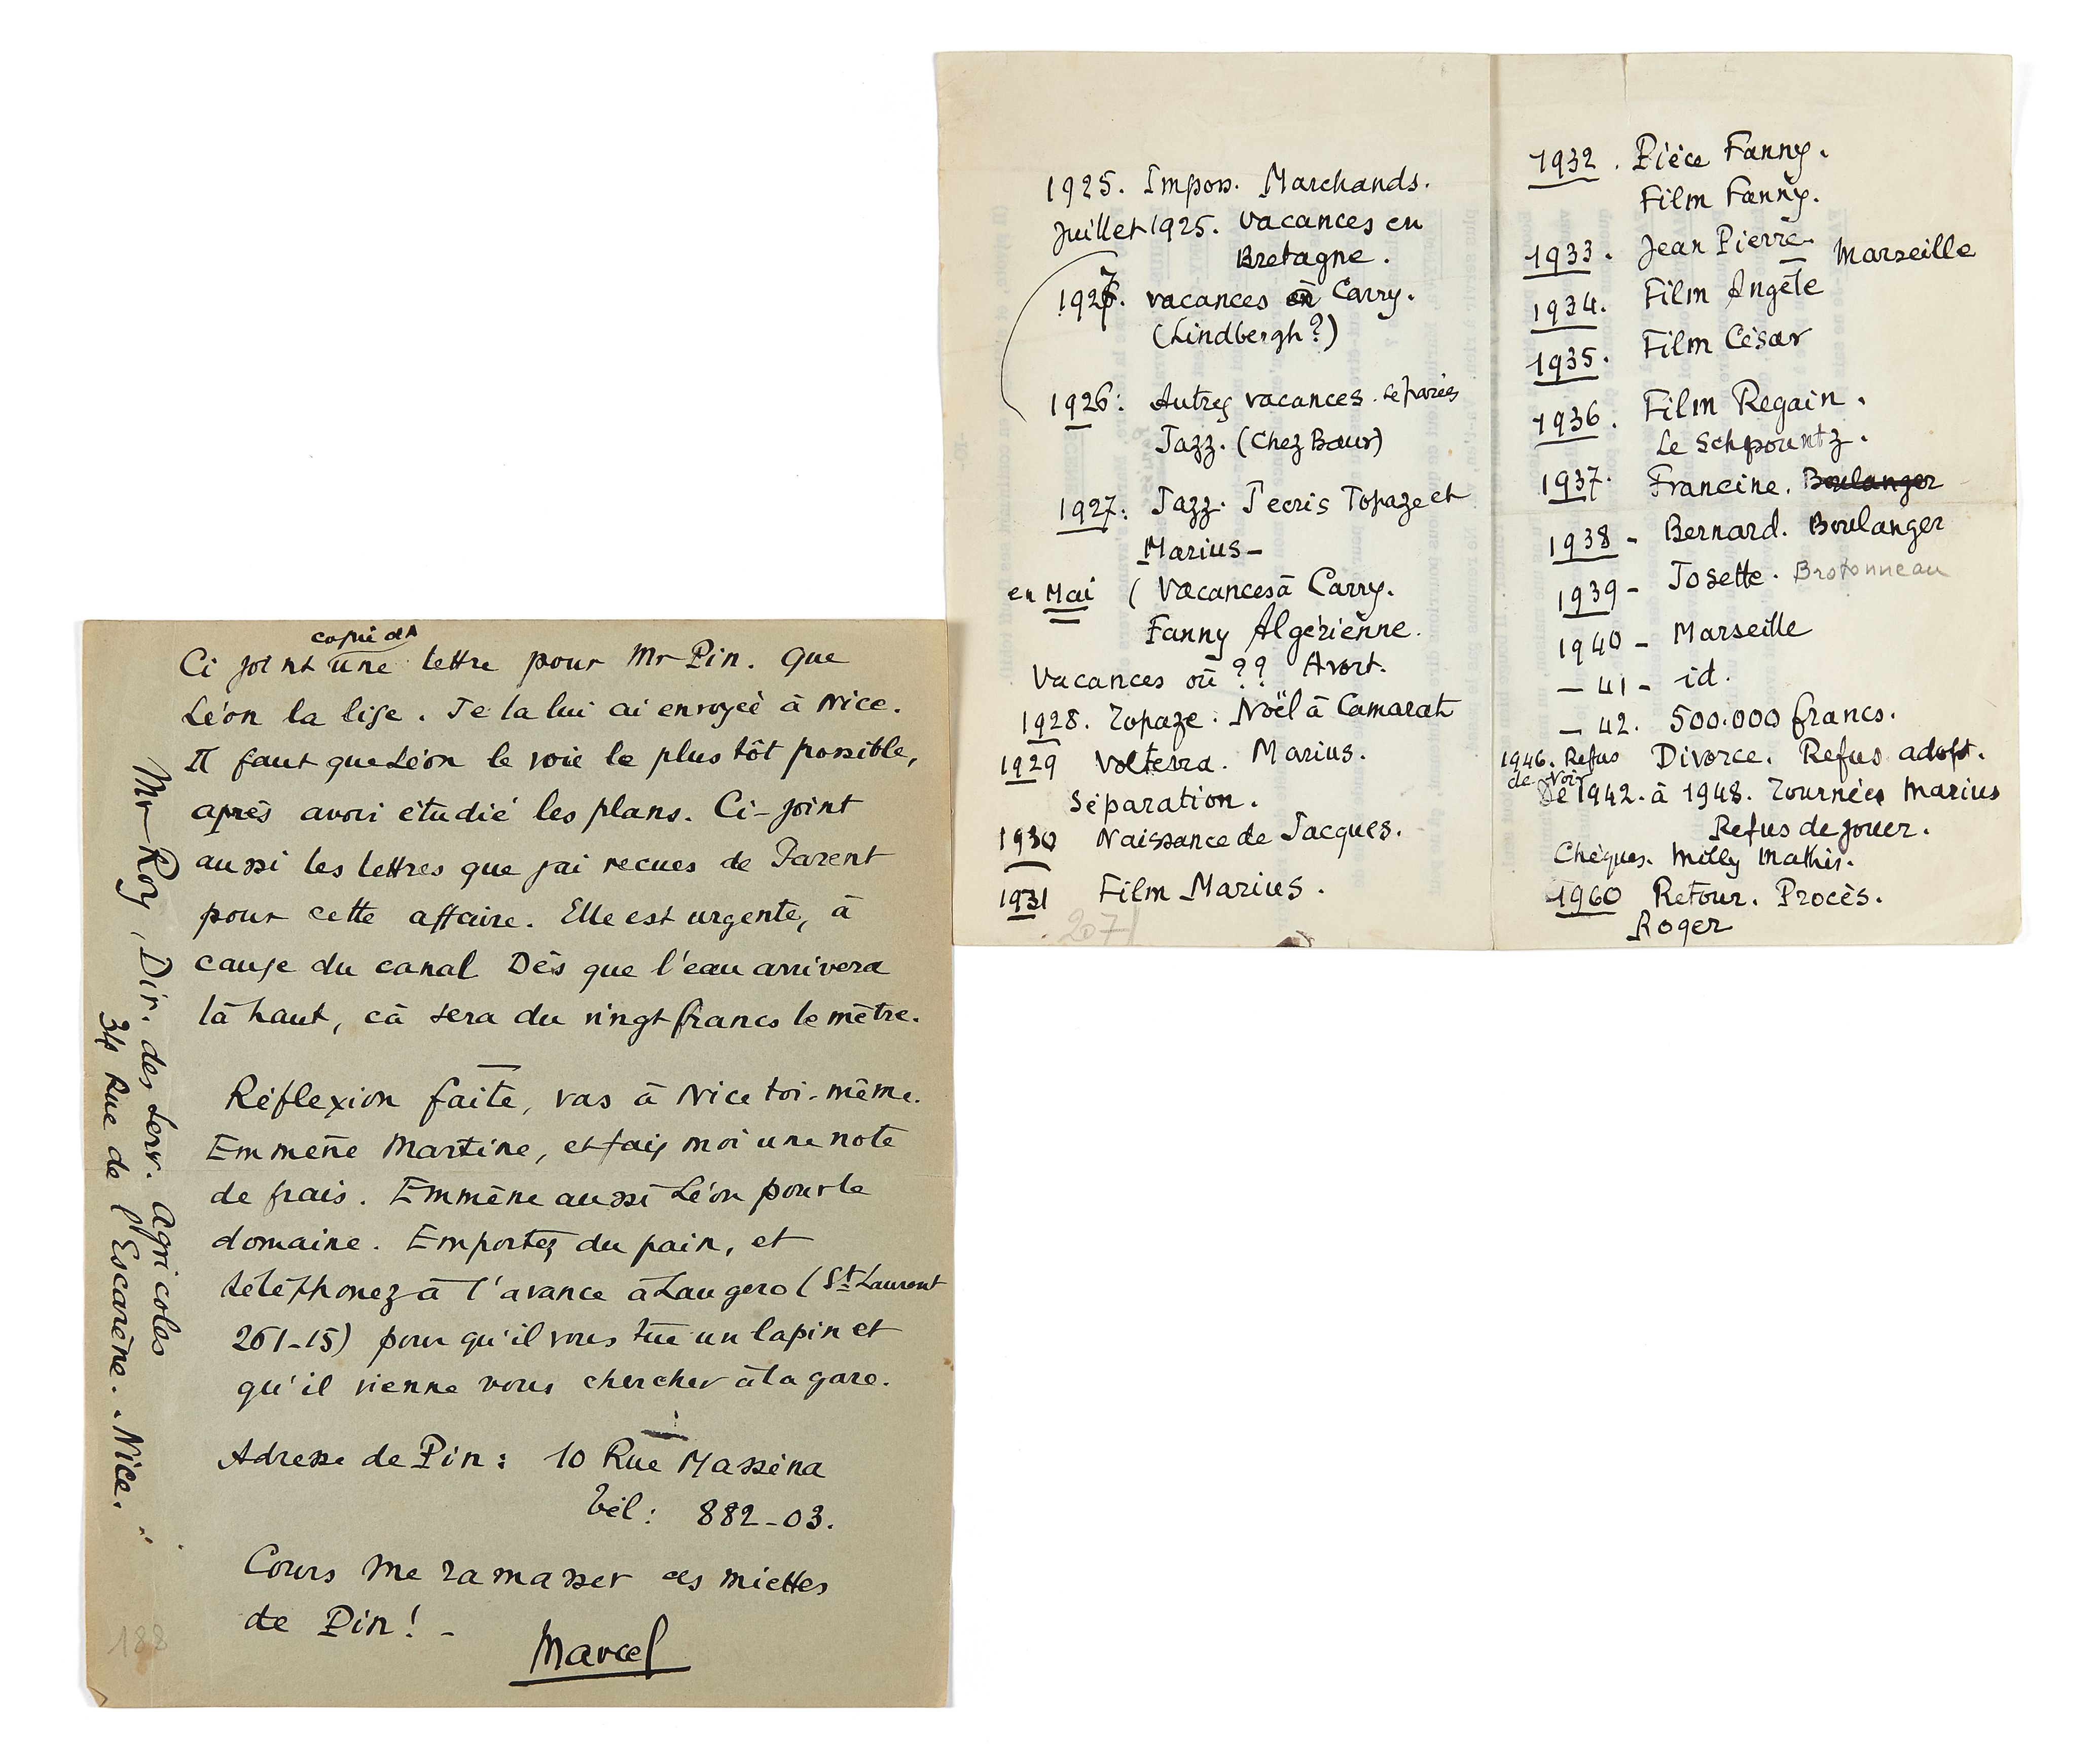 Ci joint une lettre pour Mr Pin. Que
copie d'
Léon la lise. Je la lui ai envoyée à Nice.
Il faut que Léon le voie le plus tôt possible,
après avoir étudié les plans. Ci-joint
aussi les lettres que j'ai recues de Parent
pour cette affaire. Elle est urgente, à
cause du canal Dès que l'eau arrivera
là haut, cà sera du vingt francs le mètre.
Réflexion faite, vas à Nice toi-même.
Emmène Martine, et fais moi une note
de frais. Emmène aussi Léon pour le
domaine. Emportez du pain, et
téléphonez à l'avance à Laugero (St Laurent
261-15) pour qu'il vous tue un lapin et
qu'il vienne vous chercher à la gare.
Adresse de Pin : 10 Rue Masséna
Tél : 882-03.
Cours me ramasser ces miettes
de Pin ! -
Marcel
Mr Roy, Dir. des Serv. Agricoles
34 Rue de l'Escarène. Nice.
188
1925. Impos. Marchands.
Juillet 1925. Vacances en
Bretagne.
1927. vacances en Carry.
(Lindbergh ?)
1926: Autres vacances. Séparés
Jazz. (Chez Baur)
1927: Jazz. J'ecris Topaze et
Marius -
en Mai ( Vacances à Carry.
Fanny Algérienne.
Vacances où ?? Avort.
1928. Topaze. Noël à Camarat
1929 Volterra. Marius.
Séparation.
1930 Naissance de Jacques.
1931 Film Marius.
207
1932. Pièce Fanny.
Film Fanny.
1933. Jean Pierre - Marseille
1934. Film Angèle
1935. Film César
1936. Film Regain.
Le Schpountz.
1937. Francine. Boulanger
1938 - Bernard. Boulanger
1939 - Josette. Brotonneau
1940 - Marseille
- 41 - id.
- 42. 500.000 francs.
1946. Refus Divorce. Refus adopt.
de Voir
De 1942. à 1948. Tournées Marius
Refus de jouer.
Chèques. Milly Mathis.
1960 Retour. Procès.
Roger